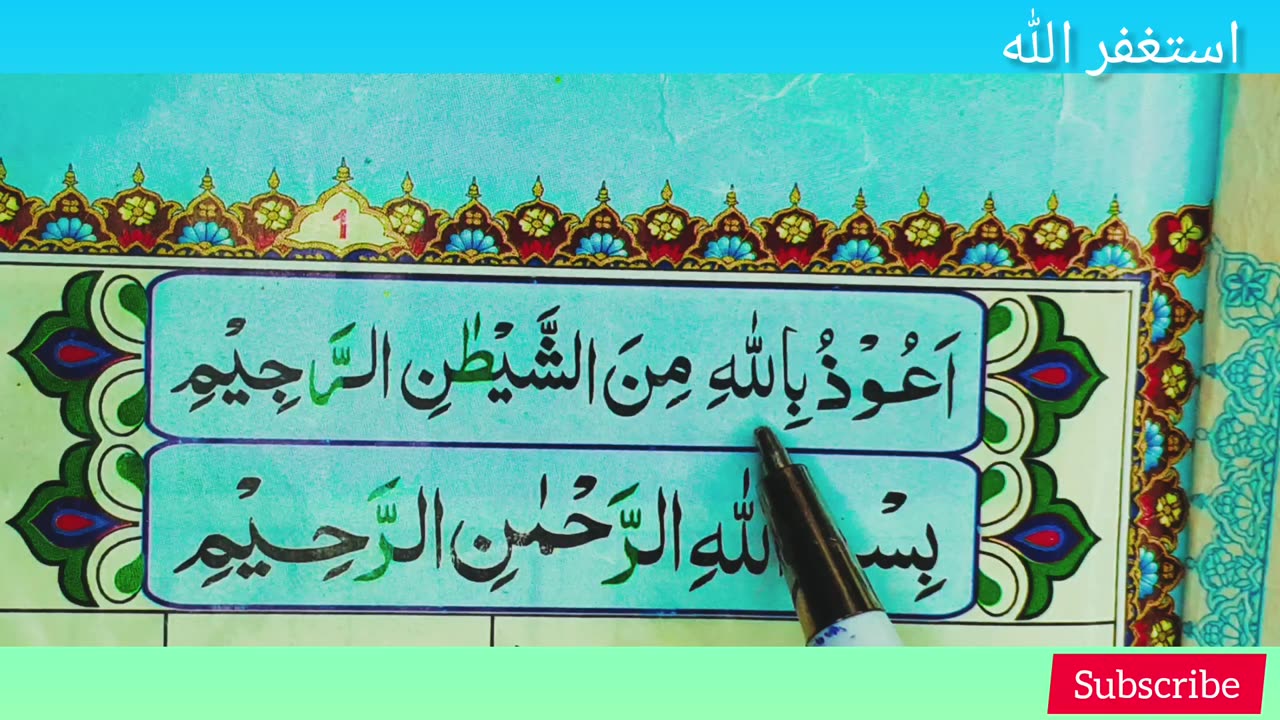 استغفر الله
1
اَعُوْذُ بِاللّٰهِ مِنَ الشَّيْطٰنِ الرَّجِيْمِ
بِسْ اللّٰهِ الرَّحْمٰنِ الرَّحِيْمِ
Subscribe